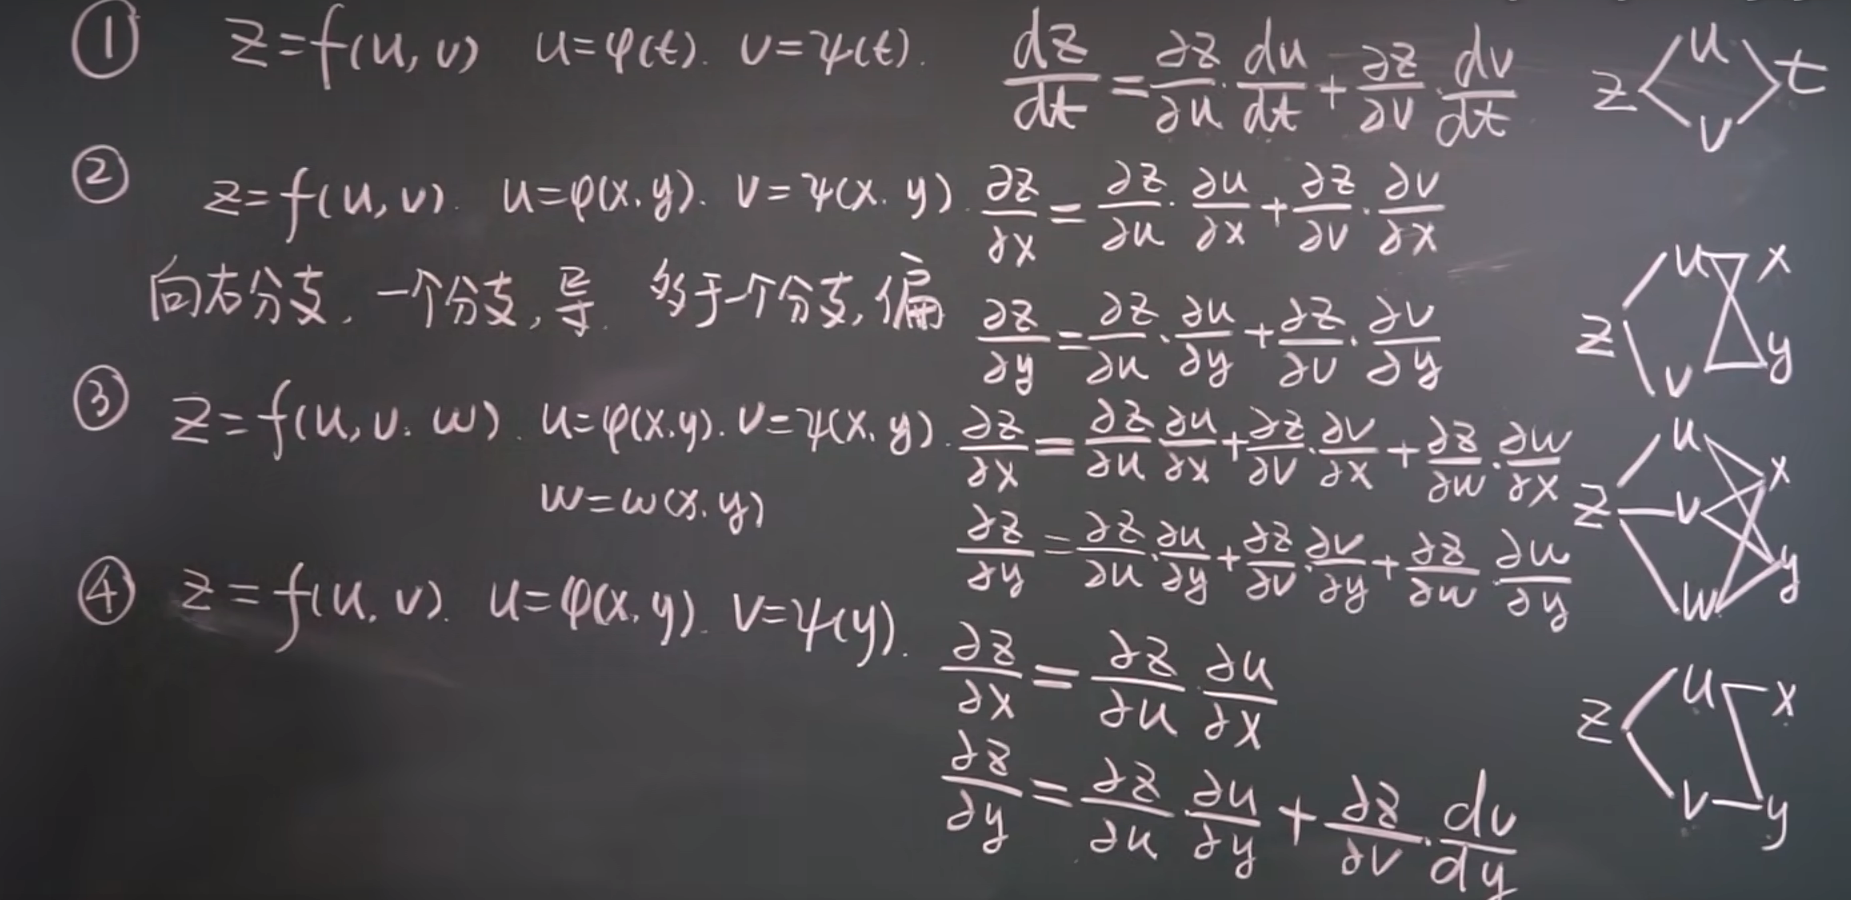 ① z=f(u,v) u=φ(t). v=ψ(t). dz/dt=∂z/∂u·du/dt+∂z/∂v·dv/dt z u v t
② z=f(u,v). u=φ(x,y). v=ψ(x,y). ∂z/∂x=∂z/∂u·∂u/∂x+∂z/∂v·∂v/∂x
向右分支,一个分支,导. 多于一个分支,偏 ∂z/∂y=∂z/∂u·∂u/∂y+∂z/∂v·∂v/∂y z u v x y
③ z=f(u,v,w). u=φ(x,y). v=ψ(x,y). ∂z/∂x=∂z/∂u·∂u/∂x+∂z/∂v·∂v/∂x+∂z/∂w·∂w/∂x
w=w(x,y) ∂z/∂y=∂z/∂u·∂u/∂y+∂z/∂v·∂v/∂y+∂z/∂w·∂w/∂y z u v w x y
④ z=f(u,v). u=φ(x,y). v=ψ(y). ∂z/∂x=∂z/∂u·∂u/∂x
∂z/∂y=∂z/∂u·∂u/∂y+∂z/∂v·dv/dy z u v x y